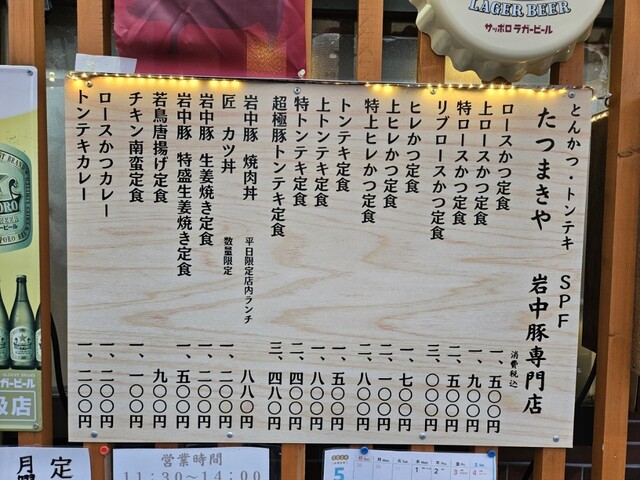 LAGER BEER
サッポロ ラガービール
とんかつ・トンテキ　SPF
たつまきや　岩中豚専門店
消費税込
ロースかつ定食　一、五〇〇円
上ロースかつ定食　一、九〇〇円
特ロースかつ定食　二、五〇〇円
リブロースかつ定食　三、〇〇〇円
ヒレかつ定食　一、七〇〇円
上ヒレかつ定食　二、一〇〇円
特上ヒレかつ定食　二、八〇〇円
トンテキ定食　一、五〇〇円
上トンテキ定食　一、八〇〇円
特トンテキ定食　二、四〇〇円
超極豚トンテキ定食　三、四八〇円
岩中豚　焼肉丼　平日限定店内ランチ　八八〇円
匠　カツ丼　数量限定　一、二〇〇円
岩中豚　生姜焼き定食　一、二〇〇円
岩中豚　特盛生姜焼き定食　一、五〇〇円
若鳥唐揚げ定食　九〇〇円
チキン南蛮定食　一、一〇〇円
ロースかつカレー　一、二〇〇円
トンテキカレー　一、二〇〇円
営業時間
11:30～14:00
5